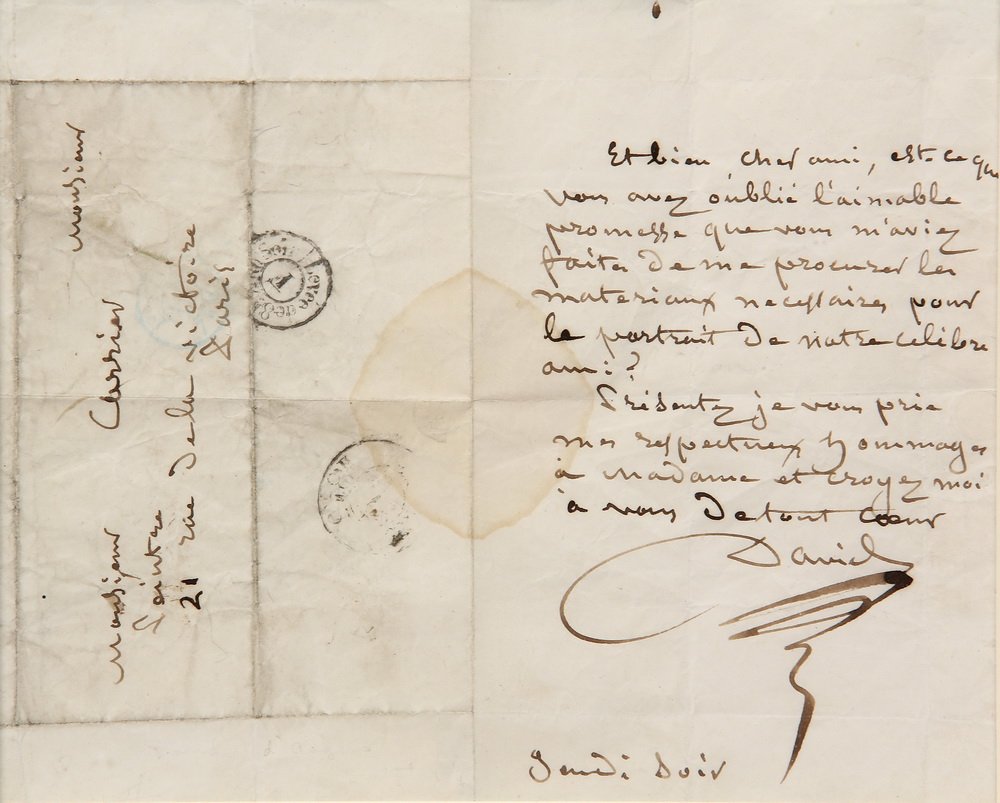 Et bien cher ami, est-ce que
vous avez oublié l'aimable
promesse que vous m'aviez
faite de me procurer les
materiaux necessaires pour
le portrait de notre celèbre
ami?
Présentez je vous prie
mes respectueux hommages
à Madame et croyez moi
à vous de tout cœur
David
Jeudi soir
Monsieur
Monsieur Carrier
Peintre
21 rue de la victoire
Paris